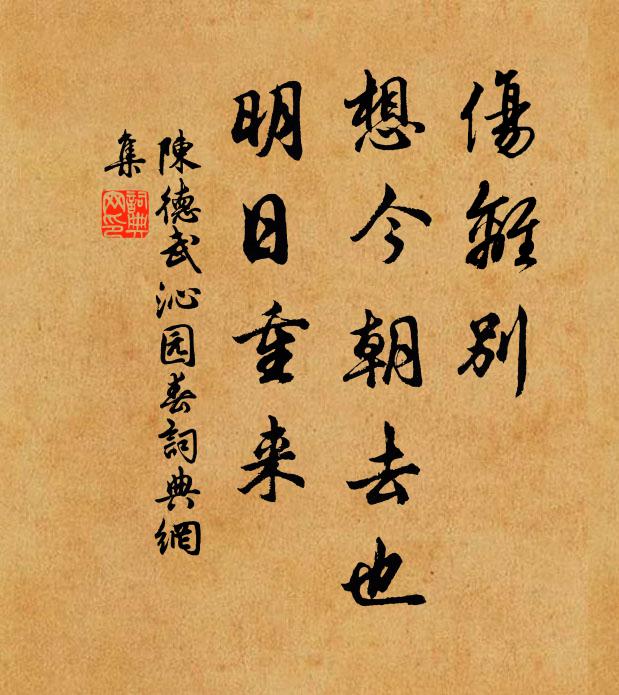 傷離别
想今朝去也
明日重来
陳德武沁园春詞典網
集
詞典
网印